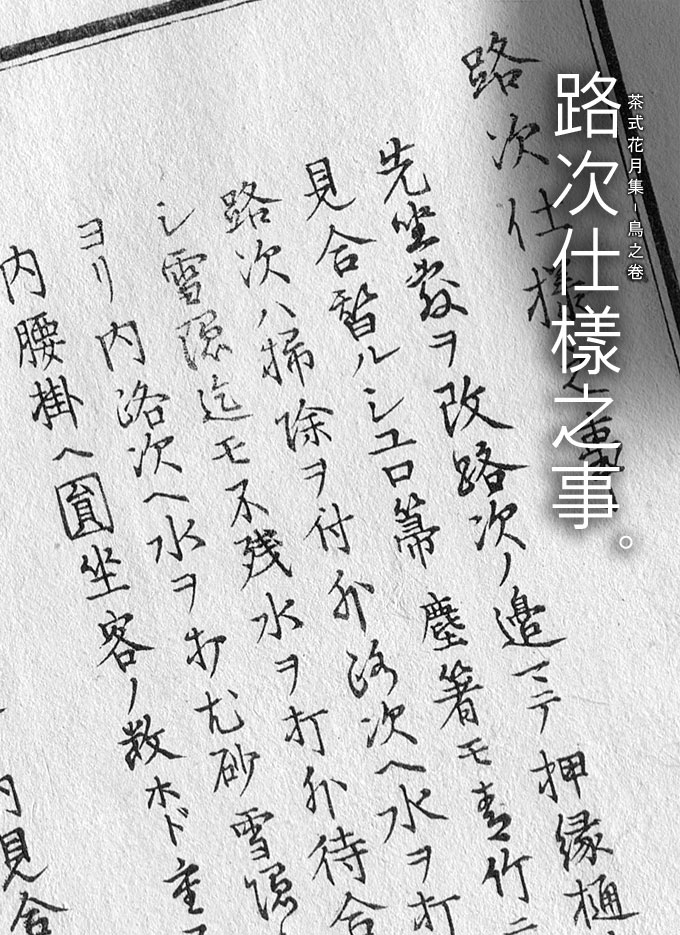 茶式花月集-鳥之巻
路次仕様之事。
路次仕様之事
先坐敷ヲ改路次ノ邉マニテ押縁樋
見合暫ルシユロ箒塵箸モ青竹ニ
路次ハ掃除ヲ付外洛次ヘ水ヲ打
シ雪隠迄モ不残水ヲ打外待合
ヨリ内洛次ヘ水ヲ打尤砂雪隠
内腰掛ヘ圓坐客ノ数ホド重
内見合